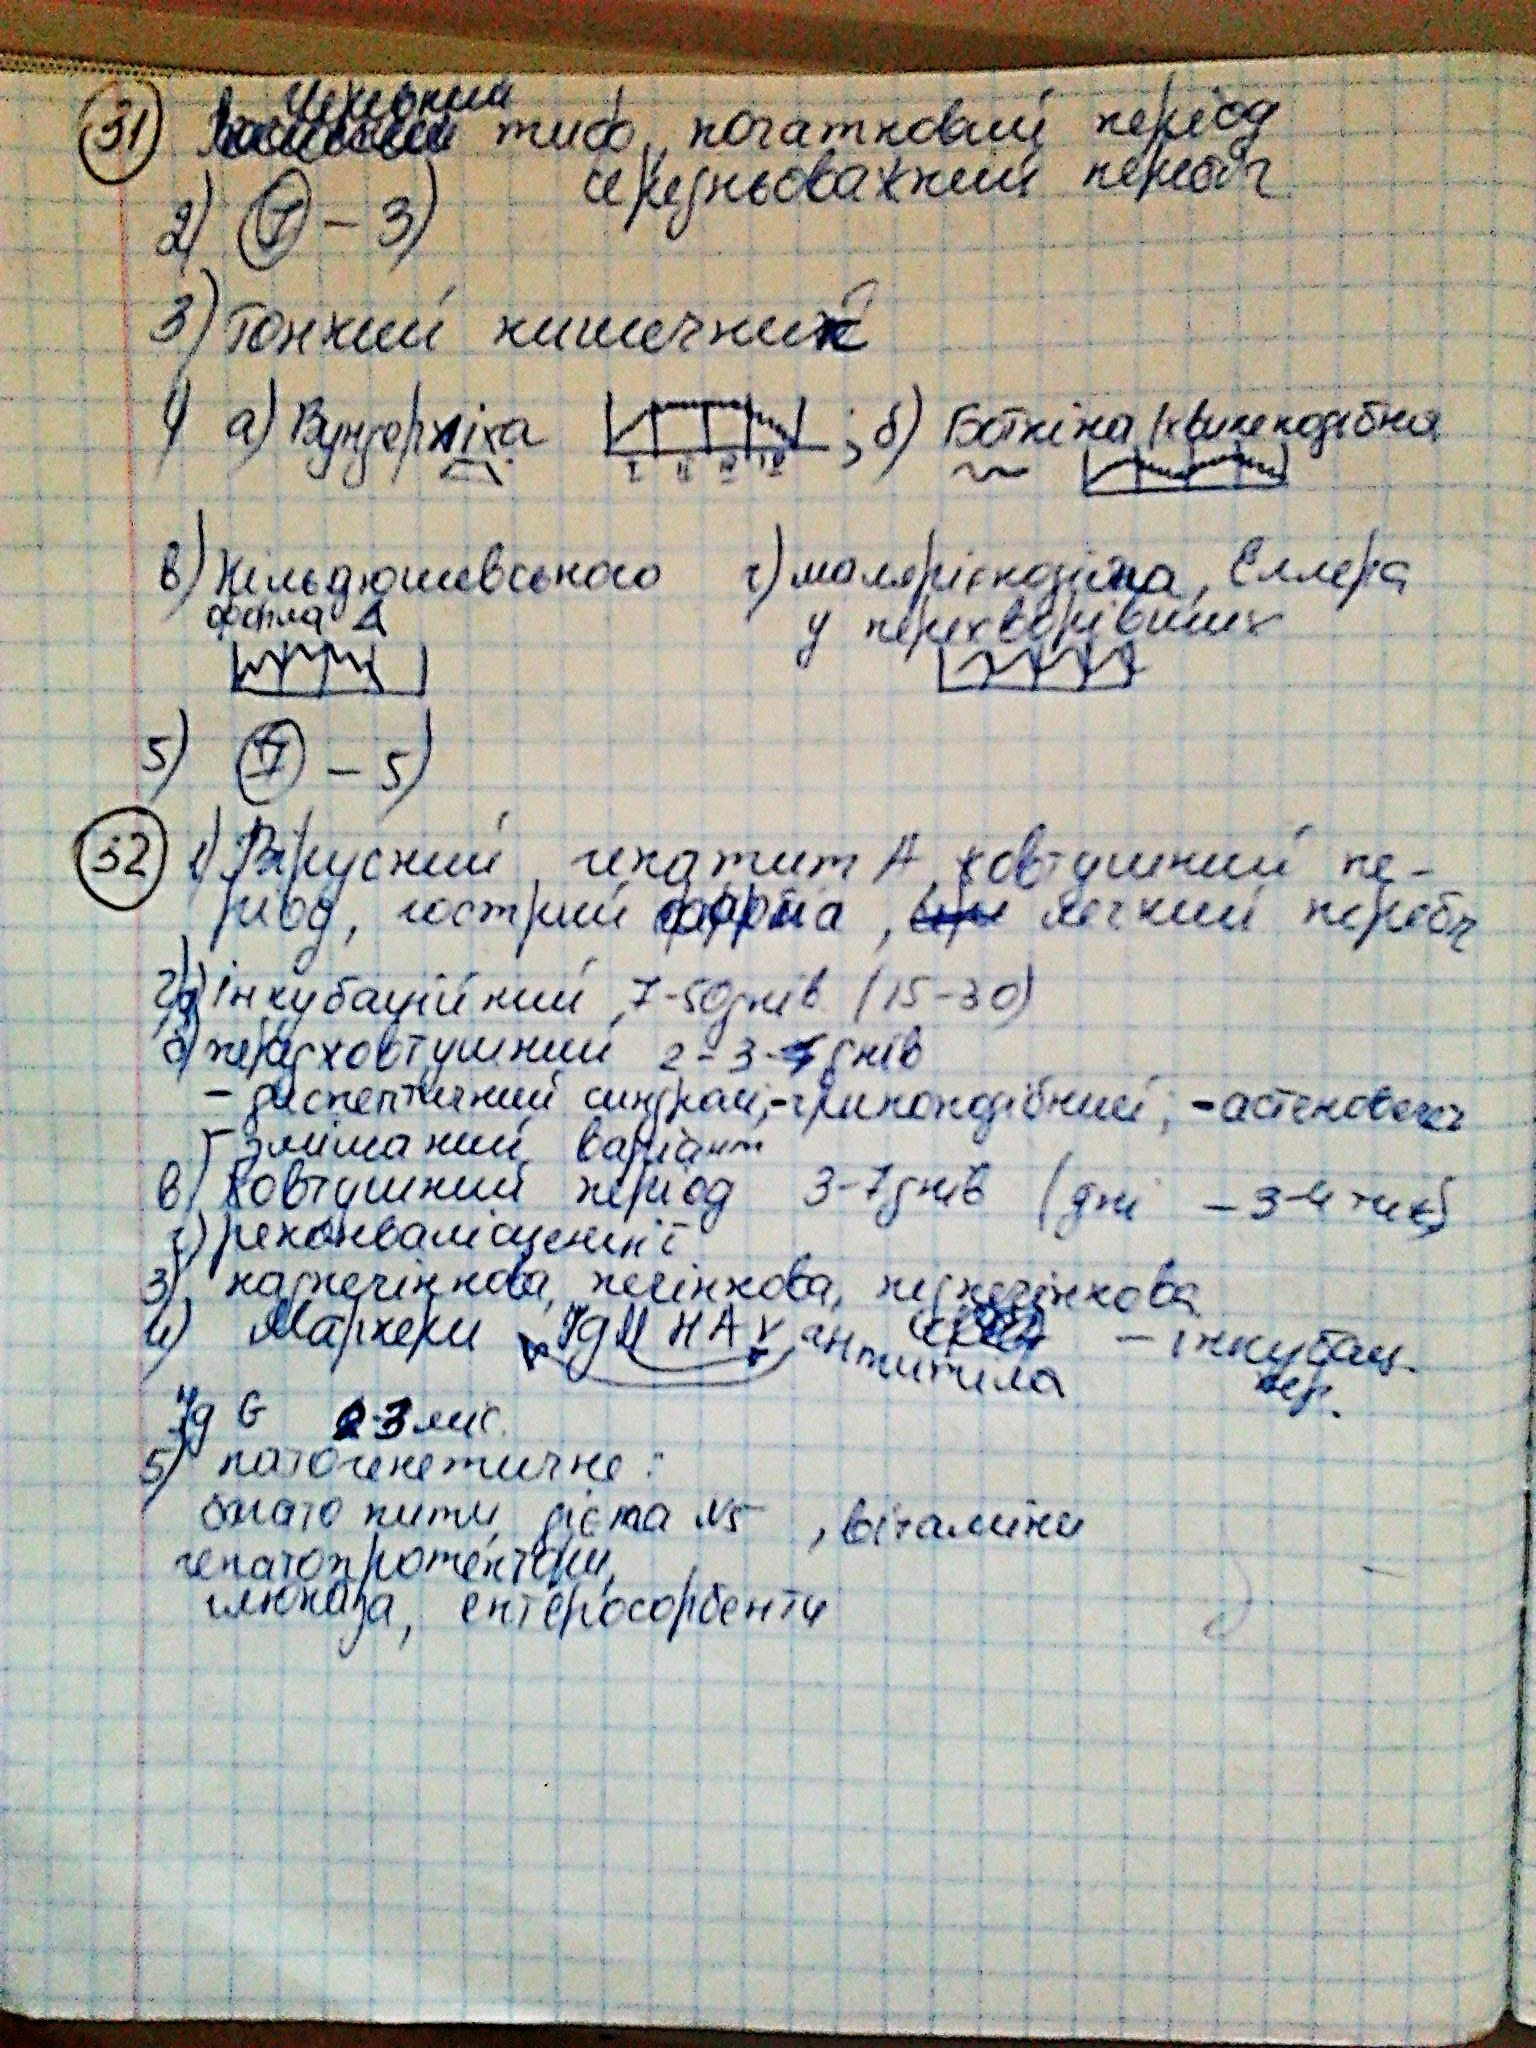 31 Черевний тиф, початковий період
середньоважкий перебіг
2) – 3)
3) Тонкий кишечник
4 а) Вундерліха I II III IV ; б) Боткіна хвилеподібна
в) Кільдюшевського г) малярієподібна, Еллера
у перехворівших
5) – 5)
32 1) Вірусний гепатит А, жовтушний пе-
ріод, гострий форма, легкий перебіг
2) а) інкубаційний, 7-50 днів (15-30)
б) переджовтушний 2-3-7 днів
– диспептичний синдром, - грипоподібний; - астеновегет
- змішаний варіант
в) Жовтушний період 3-7 днів (дні – 3-4 тижд
г) реконвалісценції
3) надпечінкова, печінкова, підпечінкова
4) Маркери IgM HAV антитіла – інкубац.
пер.
Ig G 2-3 міс.
5) патогенетичне:
багато пити, дієта №5, вітаміни
гепатопротектори,
глюкоза, ентеросорбенти